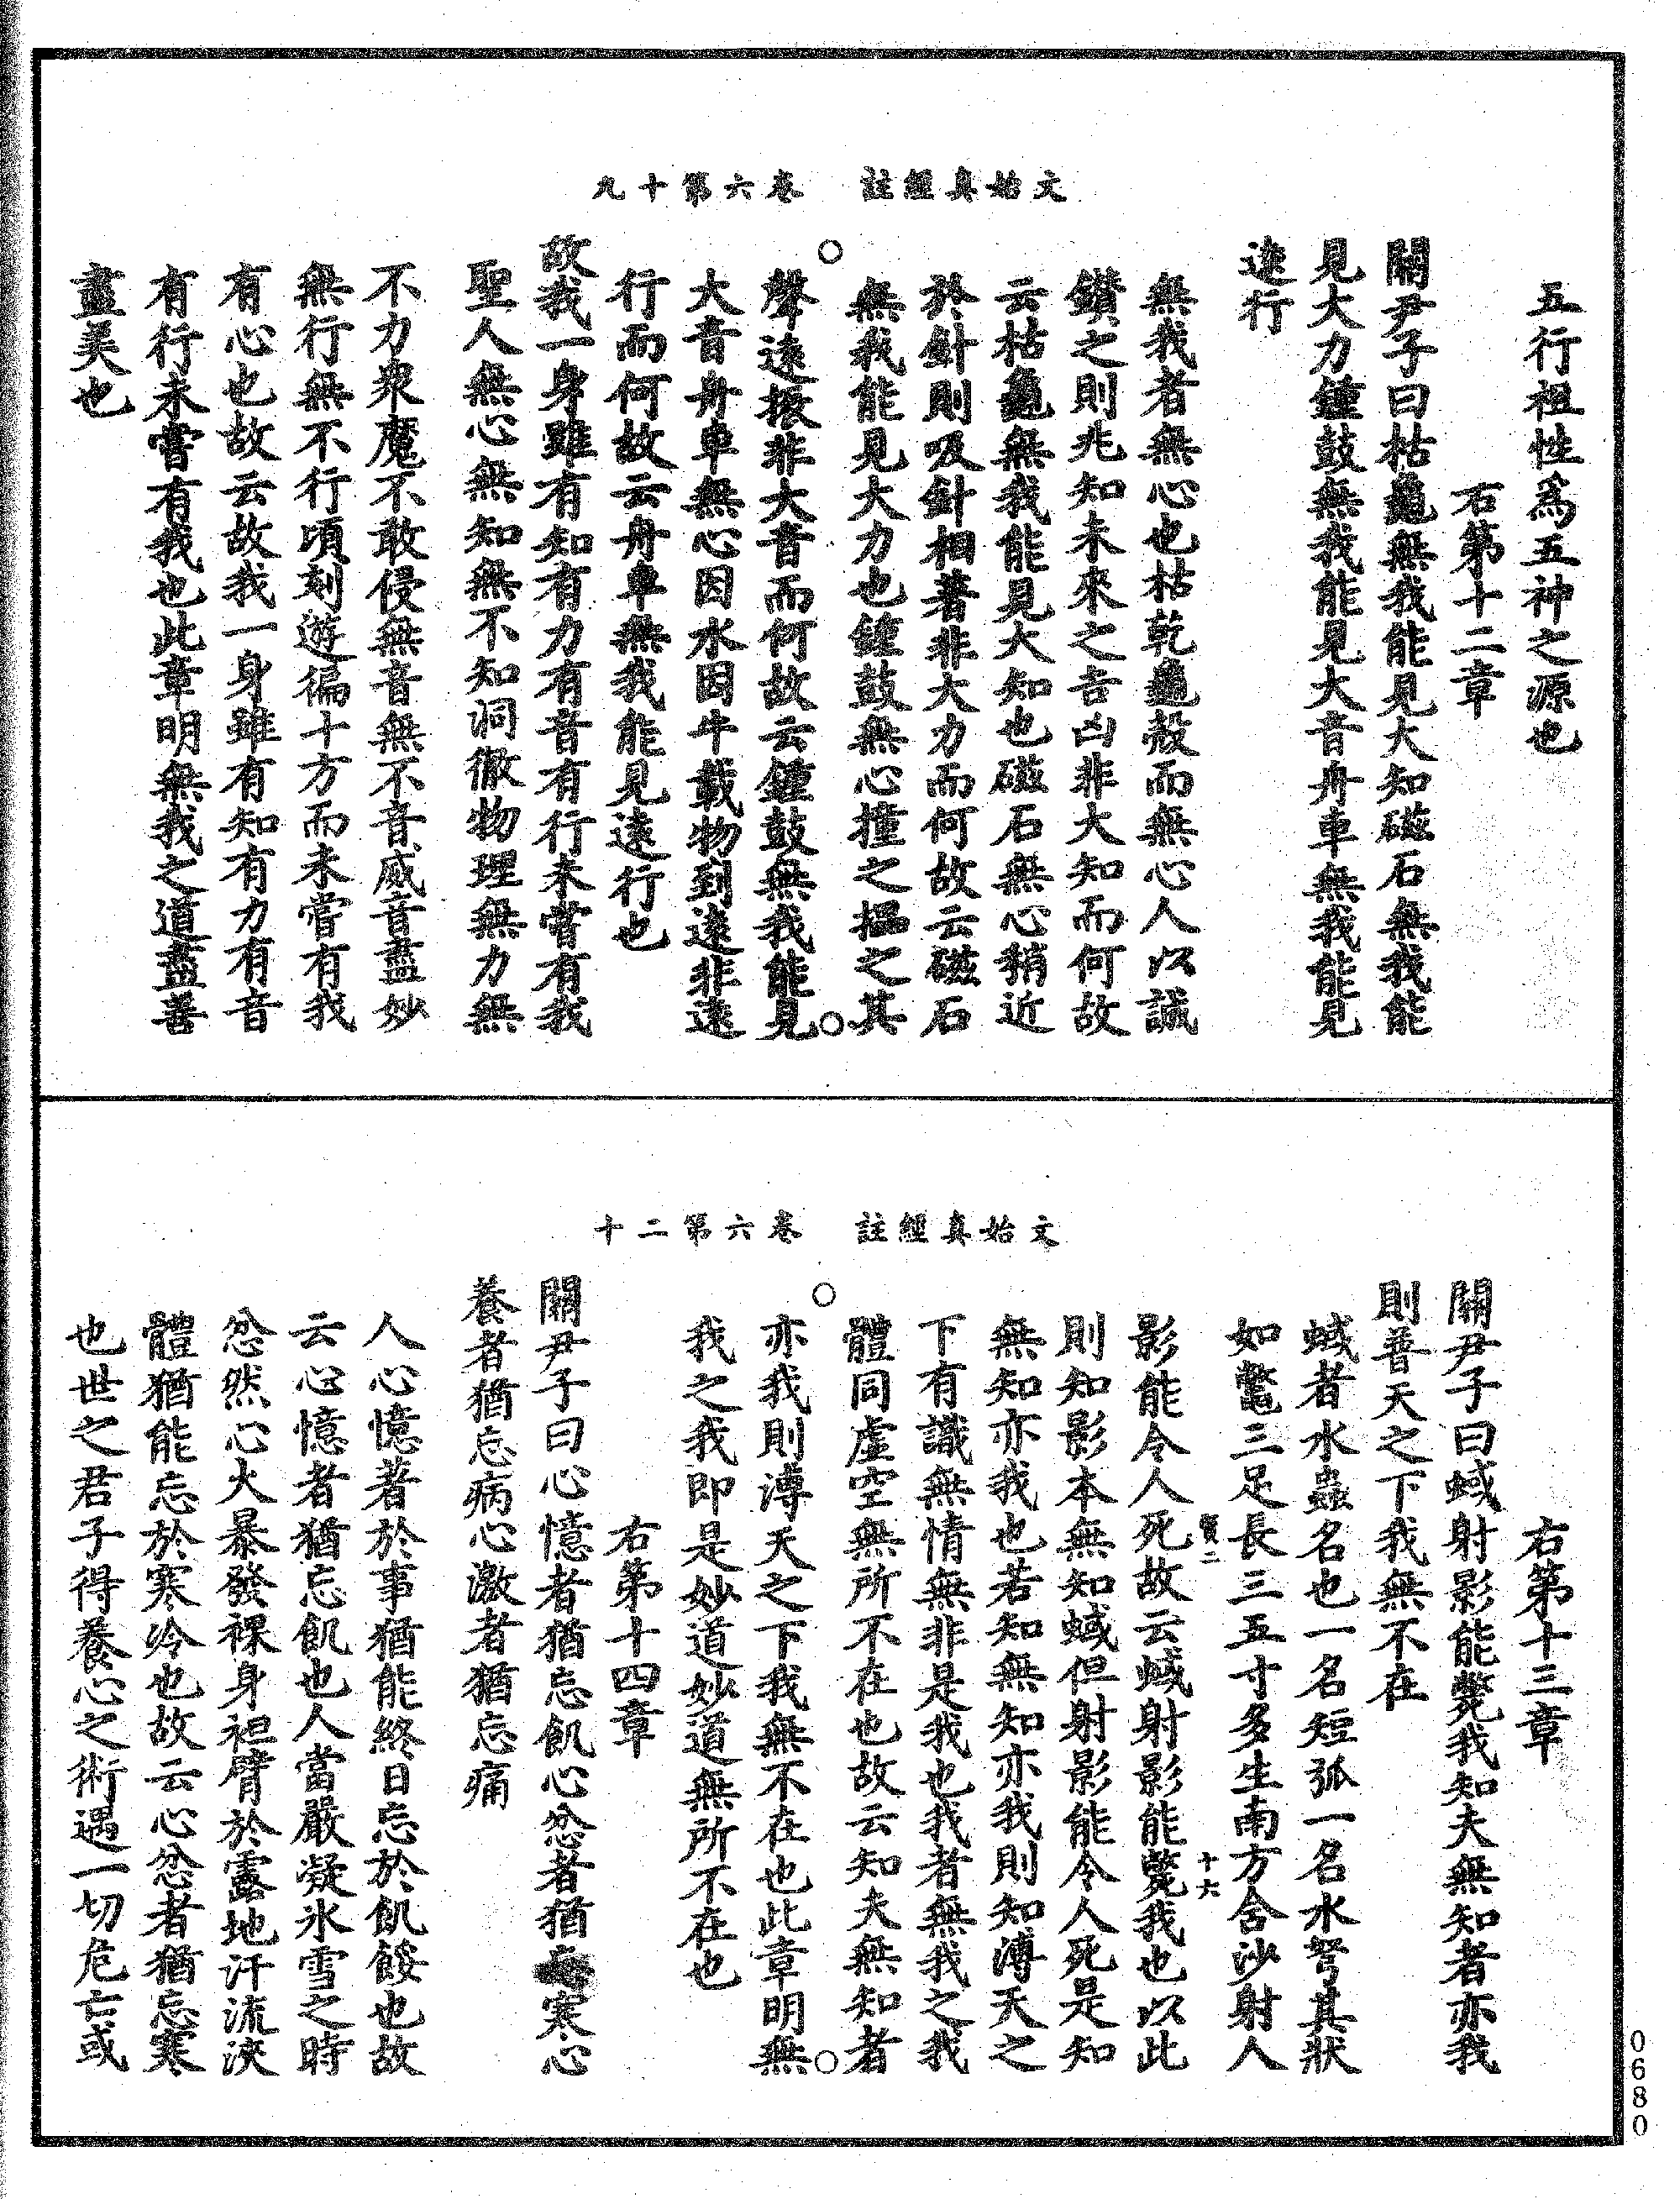 文始真經註　卷六第十九
五行祖性為五神之源也
右第十二章
關尹子曰枯龜無我能見大知磁石無我能
見大力鐘鼓無我能見大音舟車無我能見
遠行
無我者無心也枯乾龜殼而無心人以誠
鑽之則兆知未來之吉凶非大知而何故
云枯龜無我能見大知也磁石無心稍近
於針則吸針相著非大力而何故云磁石
無我能見大力也鐘鼓無心撞之摳之其
聲遠振非大音而何故云鐘鼓無我能見
大音舟車無心因水因牛載物到遠非遠
行而何故云舟車無我能見遠行也
故我一身雖有知有力有音有行未嘗有我
聖人無心無知無不知洞徹物理無力無
不力衆魔不敢侵無音無不音咸音盡妙
無行無不行頃刻遊徧十方而未嘗有我
有心也故云故我一身雖有知有力有音
有行未嘗有我也此章明無我之道盡善
盡美也
文始真經註　卷六第二十
右第十三章
關尹子曰蜮射影能斃我知夫無知者亦我
則普天之下我無不在
蜮者水蟲名也一名短狐一名水弩其狀
如鼈三足長三五寸多生南方含沙射人
十六
影能令人死故云蜮射影能斃我也以此
則知影本無知蜮但射影能令人死是知
無知亦我也若知無知亦我則知溥天之
下有識無情無非是我也我者無我之我
體同虛空無所不在也故云知夫無知者
亦我則溥天之下我無不在也此章明無
我之我即是妙道妙道無所不在也
右第十四章
關尹子曰心憶者猶忘飢心忿者猶忘寒心
養者猶忘病心激者猶忘痛
人心憶著於事猶能終日忘於飢餒也故
云心憶者猶忘飢也人當嚴凝氷雪之時
忿然心火暴發裸身袒臂於露地汗流浹
體猶能忘於寒冷也故云心忿者猶忘寒
也世之君子得養心之術遇一切危亡或
0680